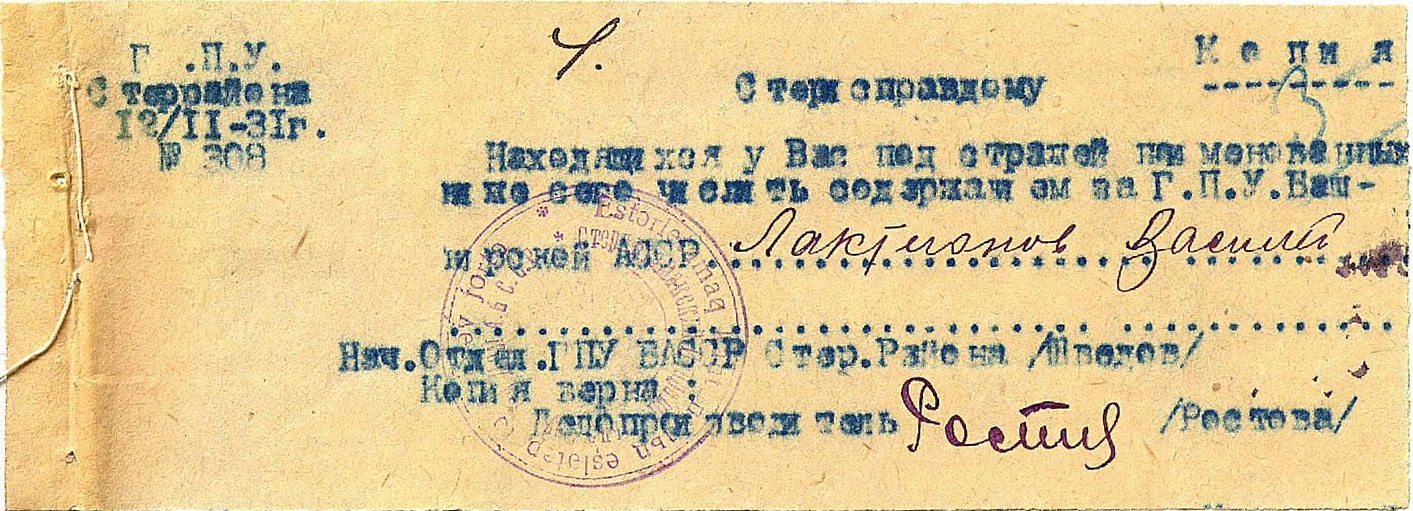 Г .П.У.
Стеррайона
12/II-31г.
№ 308
Ч.
Копия
3
Стерисправдому
Находящихся у Вас под стражей поименованных
ниже сего числить содержанием за Г.П.У.Баш-
кирской АССР. Лактионов Василий
Нач.Отдел.ГПУ БАССР Стер.Района /Шведов/
Копия верна :
Делопроизводитель Ростов /Ростова/
Esterlemaq